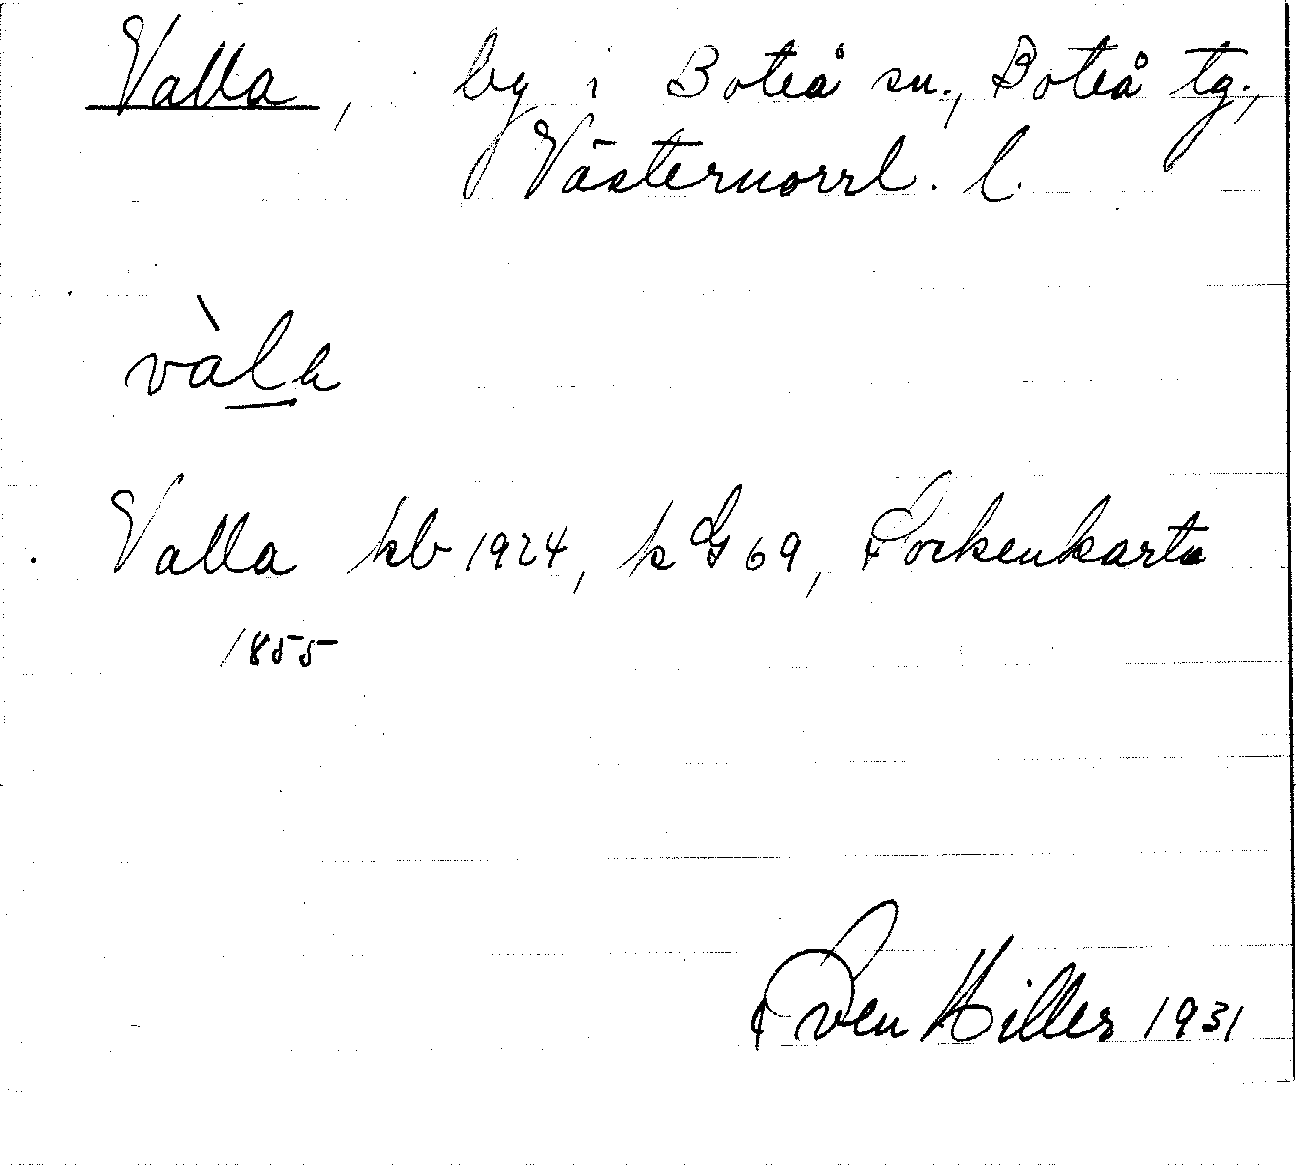 Valla, by i Boteå sn., Boteå tg.,
Västernorrl. l.
vàla
Valla kb 1924, k G 69, Sockenkarta
1855
Sven Hiller 1931